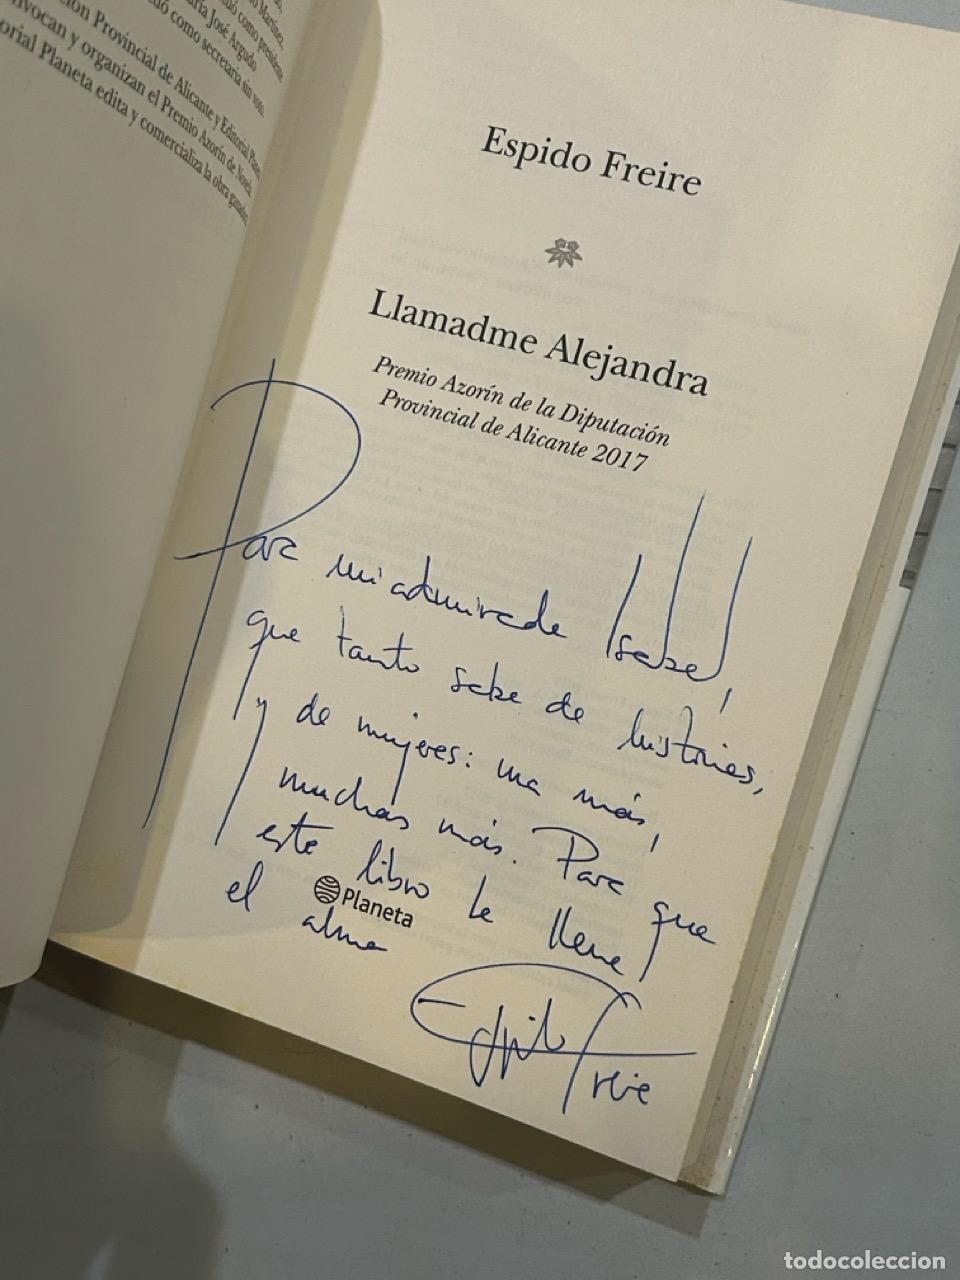 Martínez,
como presidente
María José Argudo
como secretaria sin voto.
Provincial de Alicante y Editorial
convocan y organizan el Premio Azorín de Novela.
Planeta edita y comercializa la obra
Espido Freire
Llamadme Alejandra
Premio Azorín de la Diputación
Provincial de Alicante 2017
Para mi admirada Isabel,
que tanto sabe de historias,
y de mujeres: una más,
muchas más. Para que
este libro le llene
el alma
Planeta
Espido Freire
todocoleccion